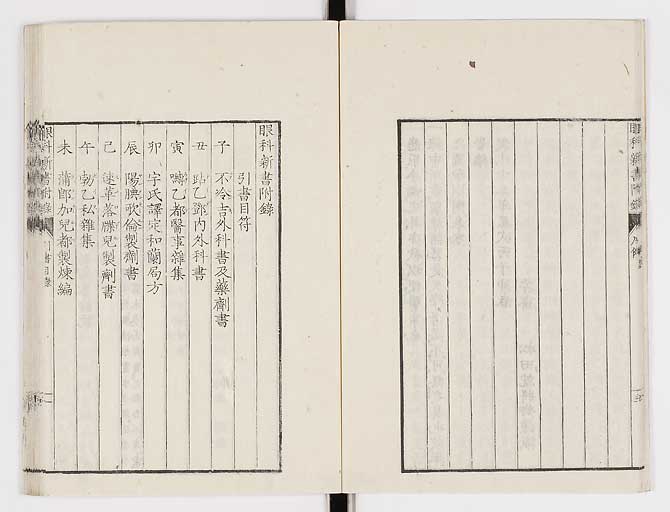 眼科新書附錄
凡例
眼科新書附錄
引書目符
子 不冷吉外科書及藥劑書
丑 乙鄧內外科書
寅 乙都醫事雜集
卯 宇氏譯定和蘭局方
辰 陽腆歌倫製劑書
巳 速革落縢兒製劑書
午 勃乙私雜集
未 蒲郎加兒都製煉編
眼科新書附錄
引書目錄